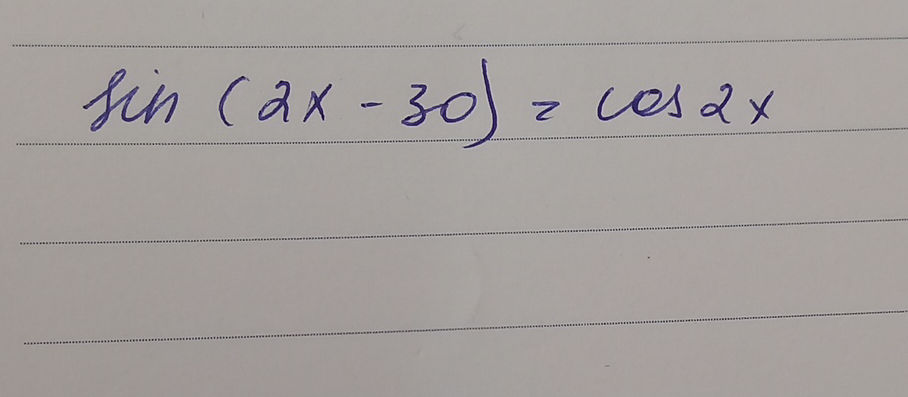 sin (2x - 30) = cos 2x